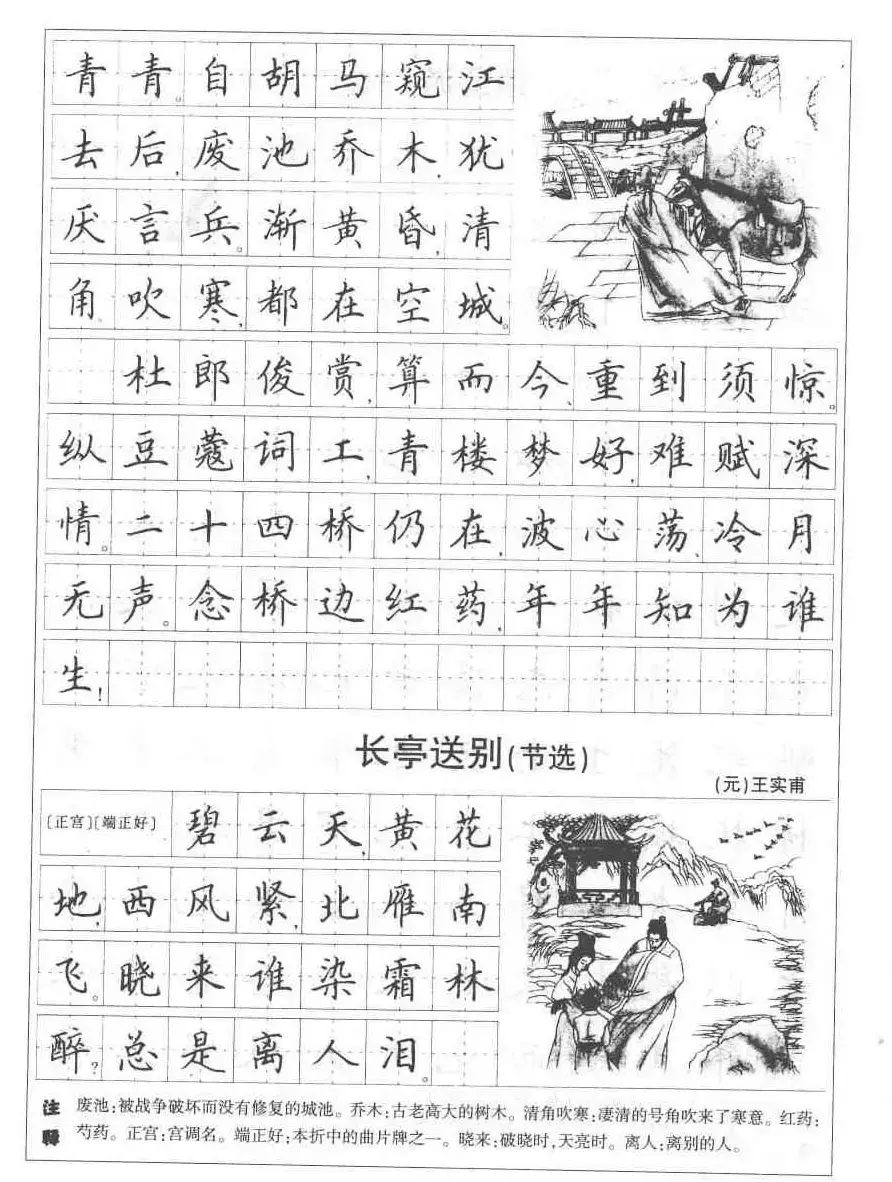 青青。自胡马窥江
去后,废池乔木,犹
厌言兵。渐黄昏,清
角吹寒,都在空城。
杜郎俊赏,算而今、重到须惊。
纵豆蔻词工,青楼梦好,难赋深
情。二十四桥仍在,波心荡、冷月
无声。念桥边红药,年年知为谁
生!
长亭送别(节选)
(元)王实甫
〔正宫〕〔端正好〕碧云天,黄花
地,西风紧,北雁南
飞。晓来谁染霜林
醉?总是离人泪。
注释 废池:被战争破坏而没有修复的城池。乔木:古老高大的树木。清角吹寒:凄清的号角吹来了寒意。红药:
芍药。正宫:宫调名。端正好:本折中的曲片牌之一。晓来:破晓时,天亮时。离人:离别的人。